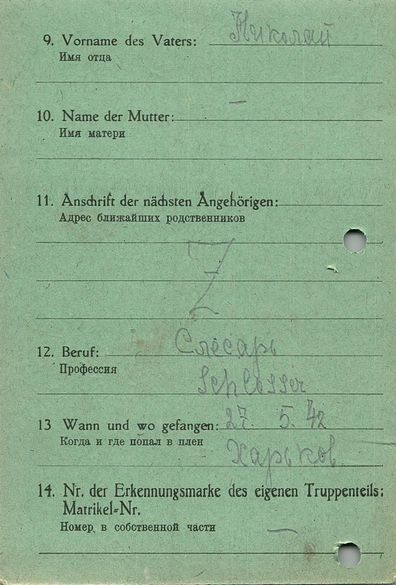 9. Vorname des Vaters: Николай
Имя отца
10. Name der Mutter: —
Имя матери
11. Anschrift der nächsten Angehörigen:
Адрес ближайших родственников
Z
12. Beruf: Слесарь
Профессия
Schlosser
13 Wann und wo gefangen: 27. 5. 42
Когда и где попал в плен
Харьков.
14. Nr. der Erkennungsmarke des eigenen Truppenteils:
Matrikel-Nr.
Номер в собственной части —